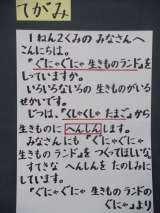 てがみ
1ねん2くみの みなさんへ
こんにちは。
『ぐにゃぐにゃ 生きものランド』を
しっていますか。
いろいろないろの 生きものがいる
せかいです。
じつは、『くしゃくしゃ たまご』から
生きものに へんしん します。
みなさんにも 『ぐにゃぐにゃ
生きものランド』を つくってほしいな。
すてきな へんしんを たのしみに
しています。
『ぐにゃぐにゃ 生きものランドの
ぐにゃ』より